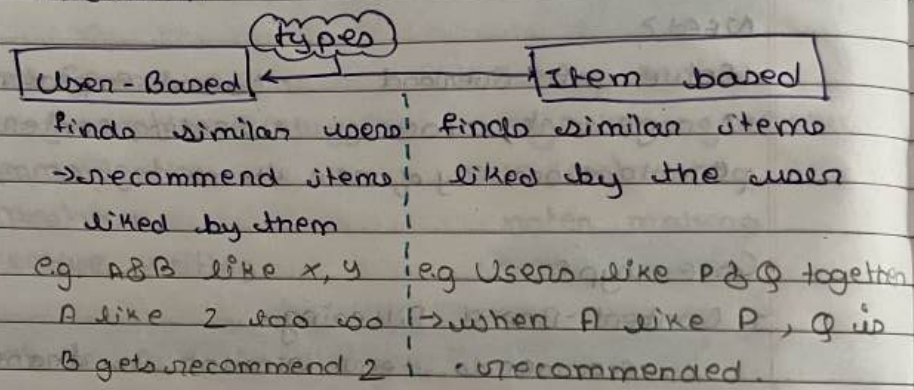 types
User-Based
Item based
finds similar users
→ recommend items
liked by them
e.g A&B like x, y
A like z too so
B gets recommend z
finds similar items
liked by the user
e.g Users like P & Q together
→ when A like P, Q is
recommended.